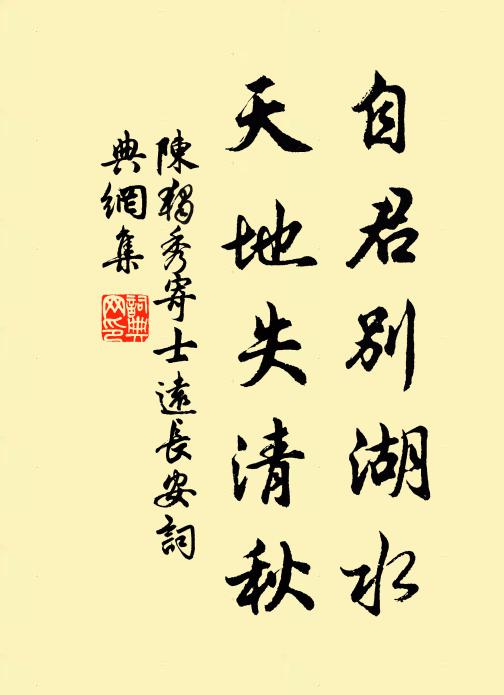 自君别湖水
天地失清秋
陳獨秀寄士遠長安詞
典網集
詞典網印